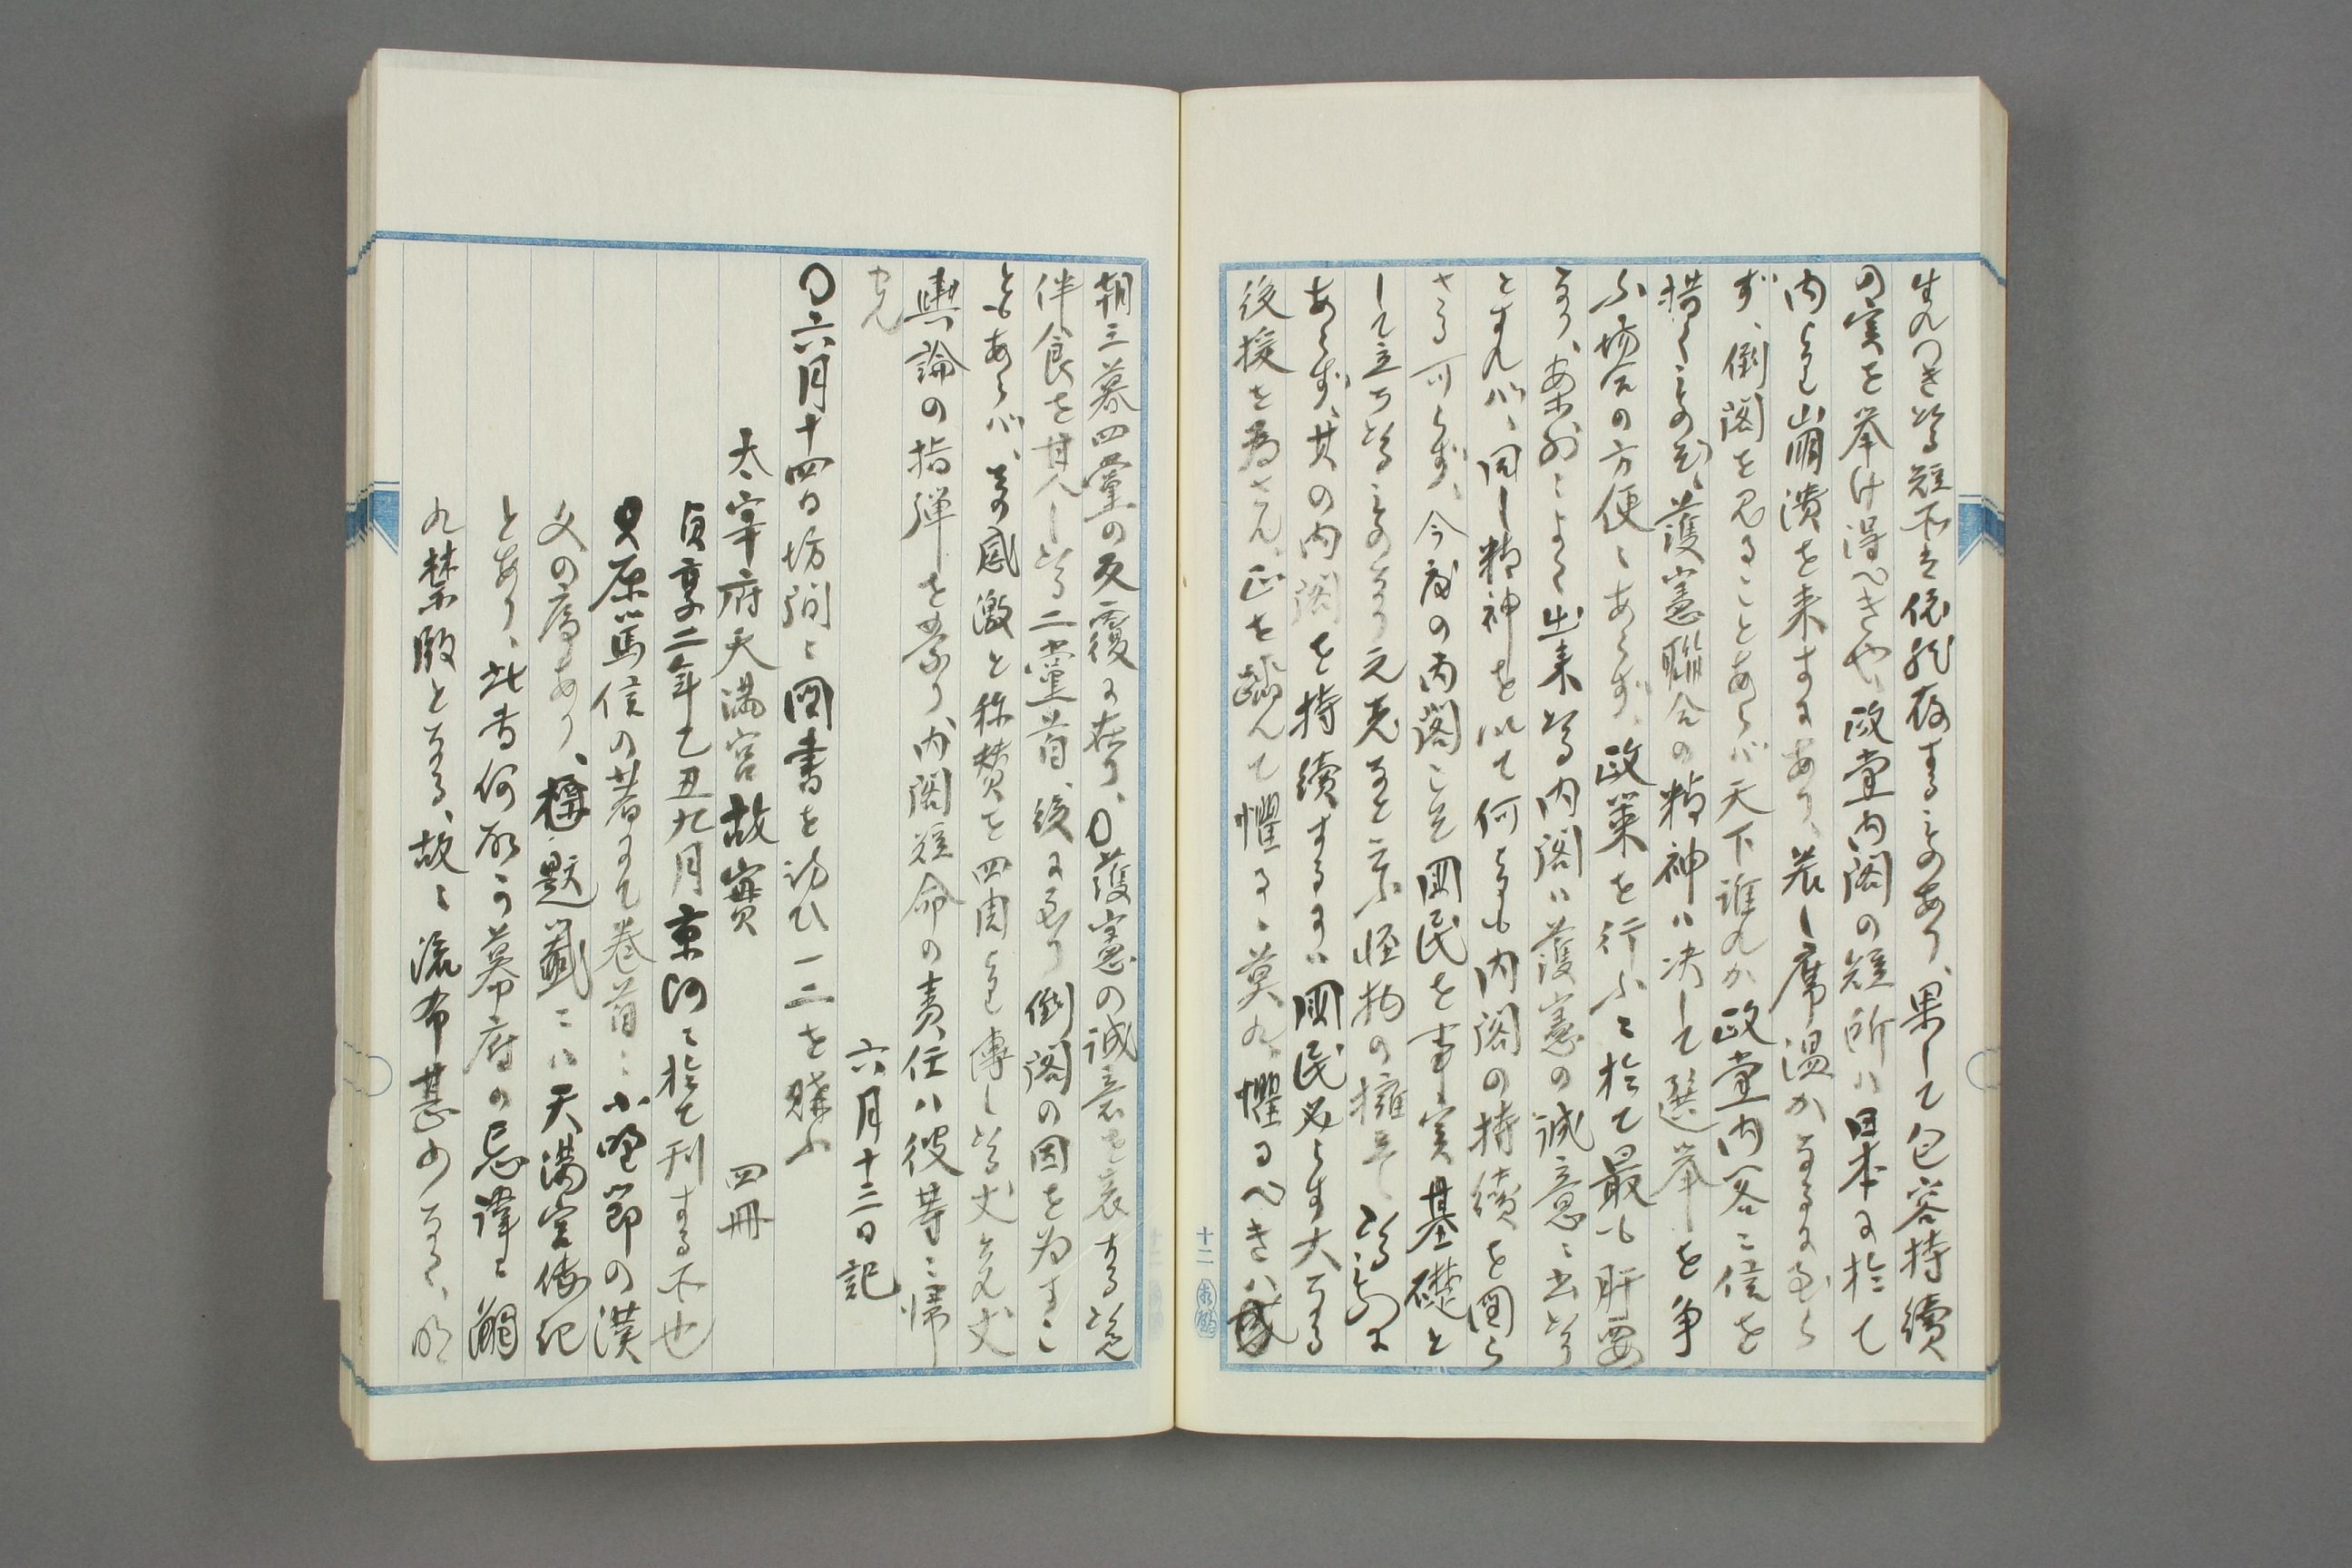 生れつきたる短不具依然存するものあり、果して包容持續
の実を挙け得へきや、政党内閣の短所ハ日本に於て
内より崩潰を来すにあり、若し席温かなるに至ら
ず、倒閣を見ることあらバ天下誰れか政党内客に信を
措くものぞ、護憲聯合の精神ハ决して選挙を争
ふ場合の方便にあらず、政策を行ふに於て最も肝要
なり、案外によく出来たる内閣ハ護憲の誠意に出たり
とすれハ、同し精神を以て何とも内閣の持續を図ら
さる可らず、今度の内閣こそ国民を事実基礎と
して立ちたるものなり元老など云ふ怪物の擁立したるものに
あらず、其の内閣を持續するにハ国民必らす大なる
後援を為さん、正を踏んで懼るゝ莫れ、懼るへきハ
朝三暮四黨の反覆に在り、護憲の誠意を表する
伴食を甘んしたる二黨首、後に至り倒閣の因を為すこ
ともあらバ、其の感激と称賛を四周より博したる丈それ丈
輿論の指弾を蒙り、内閣短命の責任ハ彼等に帰
せん
六月十三日記
〇六月十四日坊間に図書を訪ひ一二を購ふ
太宰府天満宮故實 四冊
貞享二年乙丑九月京師に於て刊する本也
貝原篤信の著にて巻首に小野節の漢
文の序あり、標題籤にハ天満宮傳記
とあり、此書何故か幕府の忌諱に觸
れ禁殿となる、故に流布甚少なし、